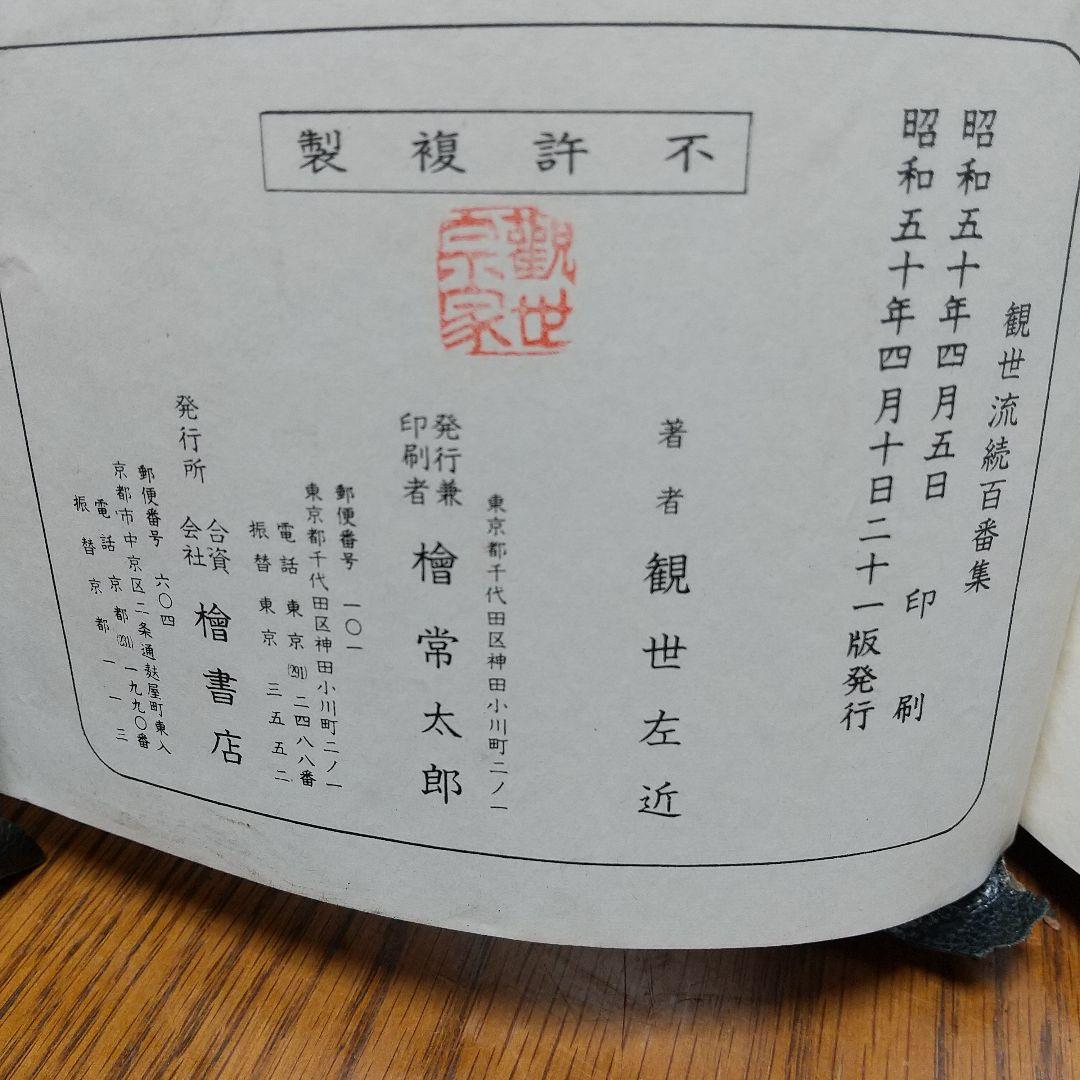 観世流続百番集
昭和五十年四月五日 印刷
昭和五十年四月十日二十一版発行
不許複製
觀世宗家
著者 観世左近
東京都千代田区神田小川町二ノ一
発行兼印刷者 檜常太郎
郵便番号 一〇一
東京都千代田区神田小川町二ノ一
電話 東京(291)二四八八番
振替 東京 三五五二
発行所 合資会社 檜書店
郵便番号 六〇四
京都市中京区二条通麩屋町東入
電話 京都(231)一九九〇番
振替 京都 一一三